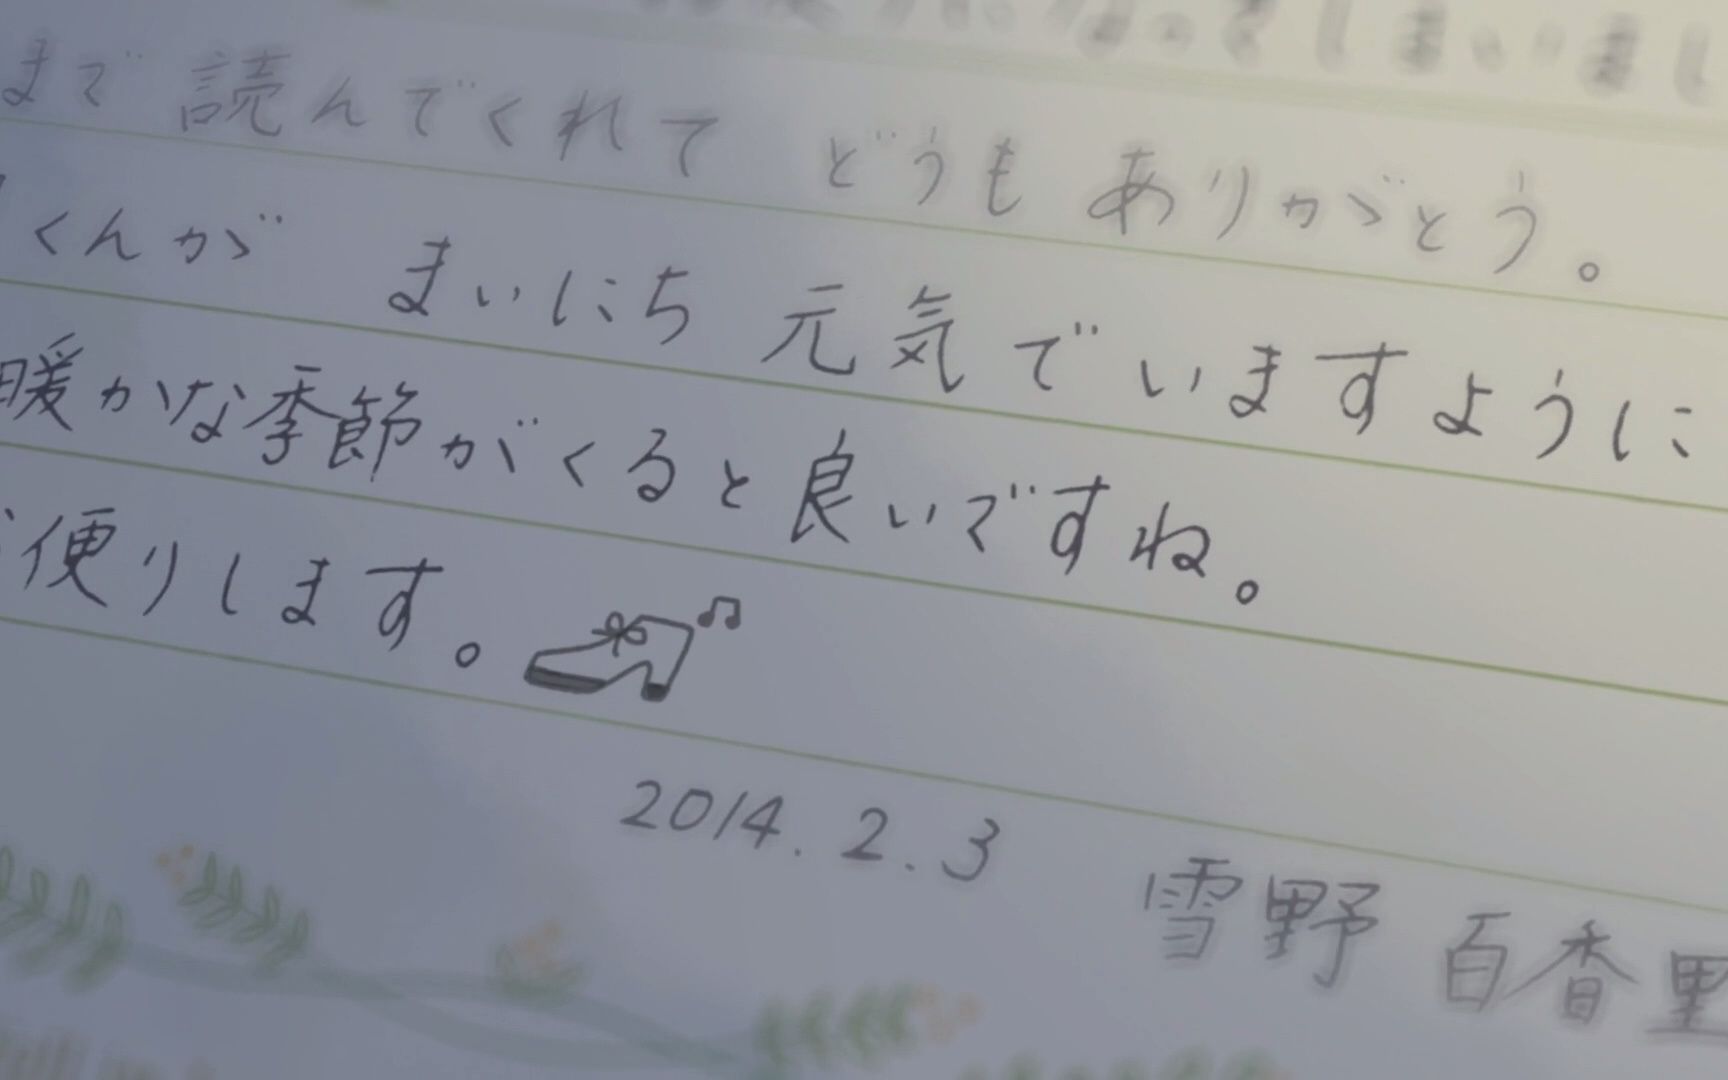 しまいまし
まで 読んでくれて どうも ありがとう。
くんが まいにち 元気でいますように
暖かな季節がくると良いですね。
便りします。
2014.2.3 雪野 百香里